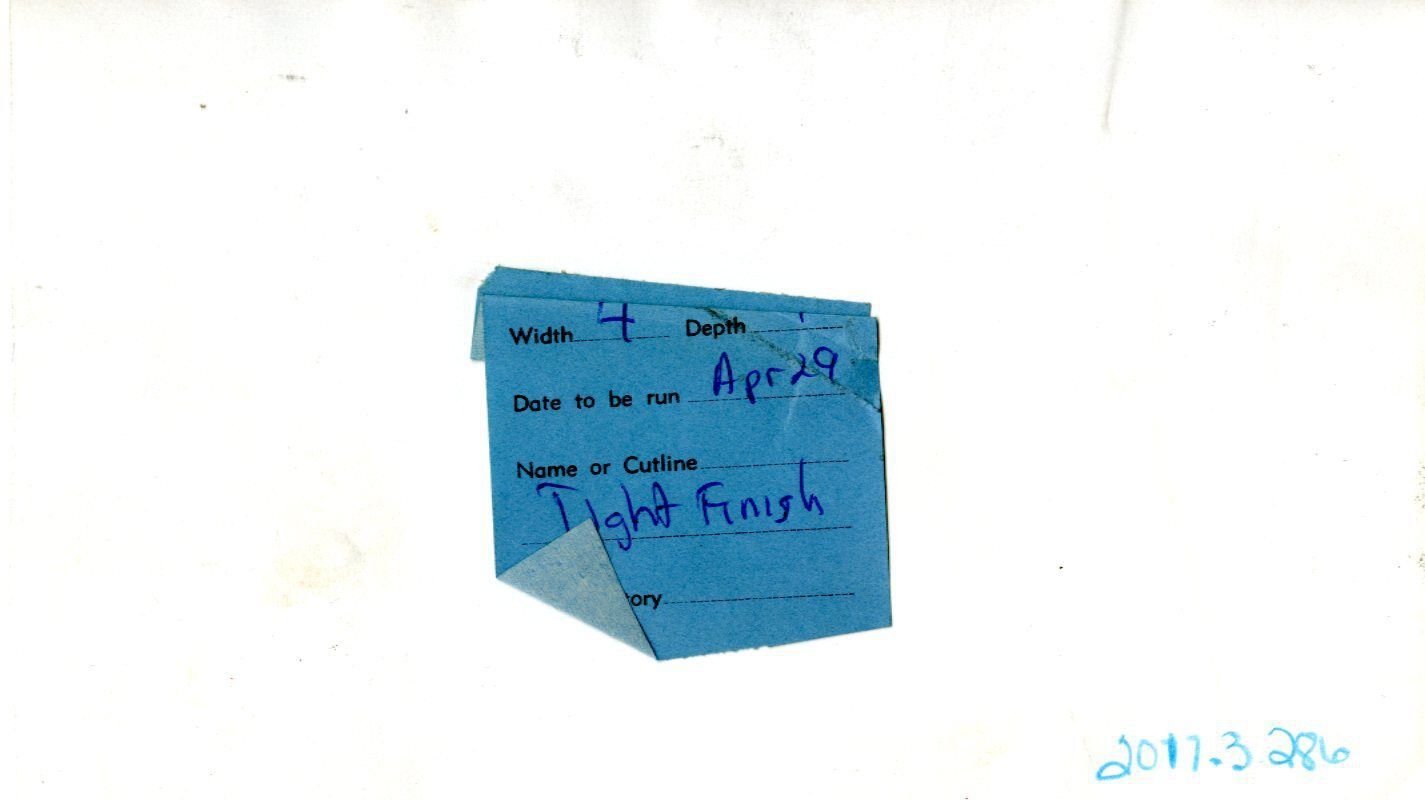 Width 4 Depth
Date to be run Apr 29
Name or Cutline
Tight Finish
ory
2017.3.286